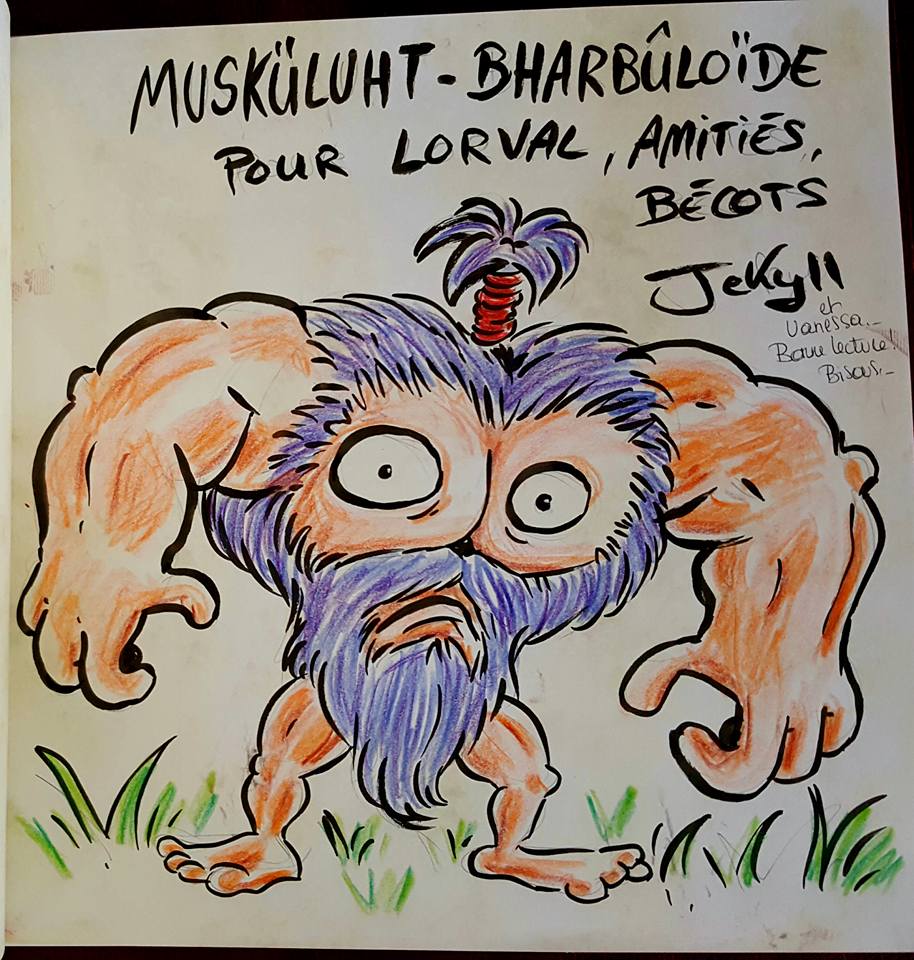 MUSKÜLUHT-BHARBÛLOÏDE
POUR LORVAL, AMITIÉS,
BÉCOTS
Jekyll
et
Vanessa._
Bonne lecture!!
Bisous._